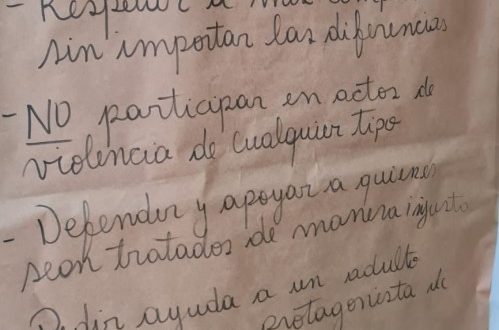 - Respetar a mis
sin importar las diferencias
- NO participar en actos de
violencia de cualquier tipo
- Defender y apoyar a quienes
sean tratados de manera injusta
Pedir ayuda a un adulto
protagonista de